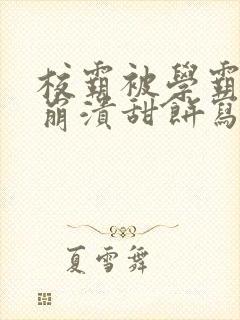 校霸被學霸
崩潰甜餅寫
夏雪舞